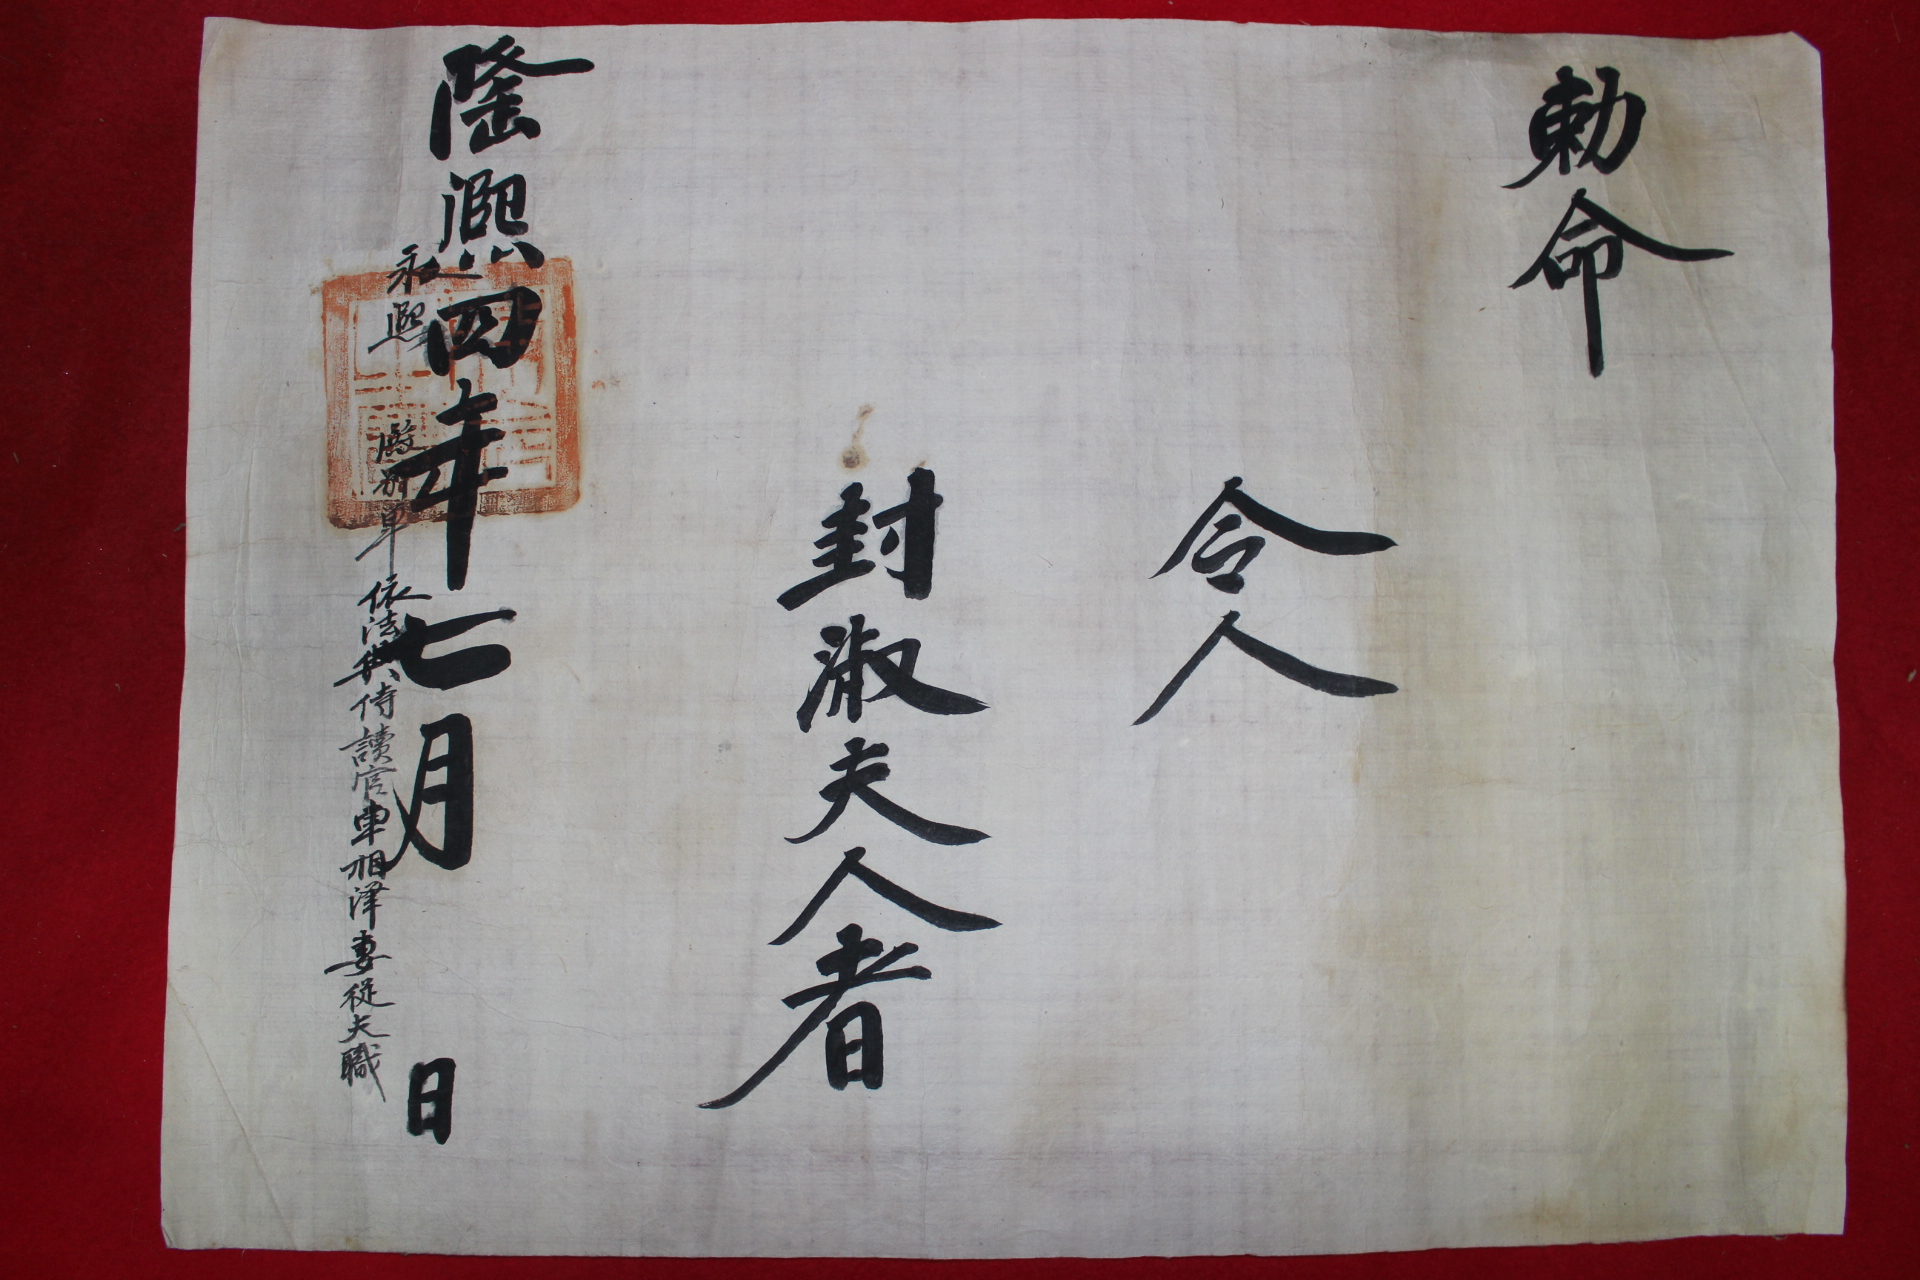 勅命
令人
封淑夫人者
隆熙四年七月 日
永熙 殿別單依法典侍讀官車相澤妻從夫職